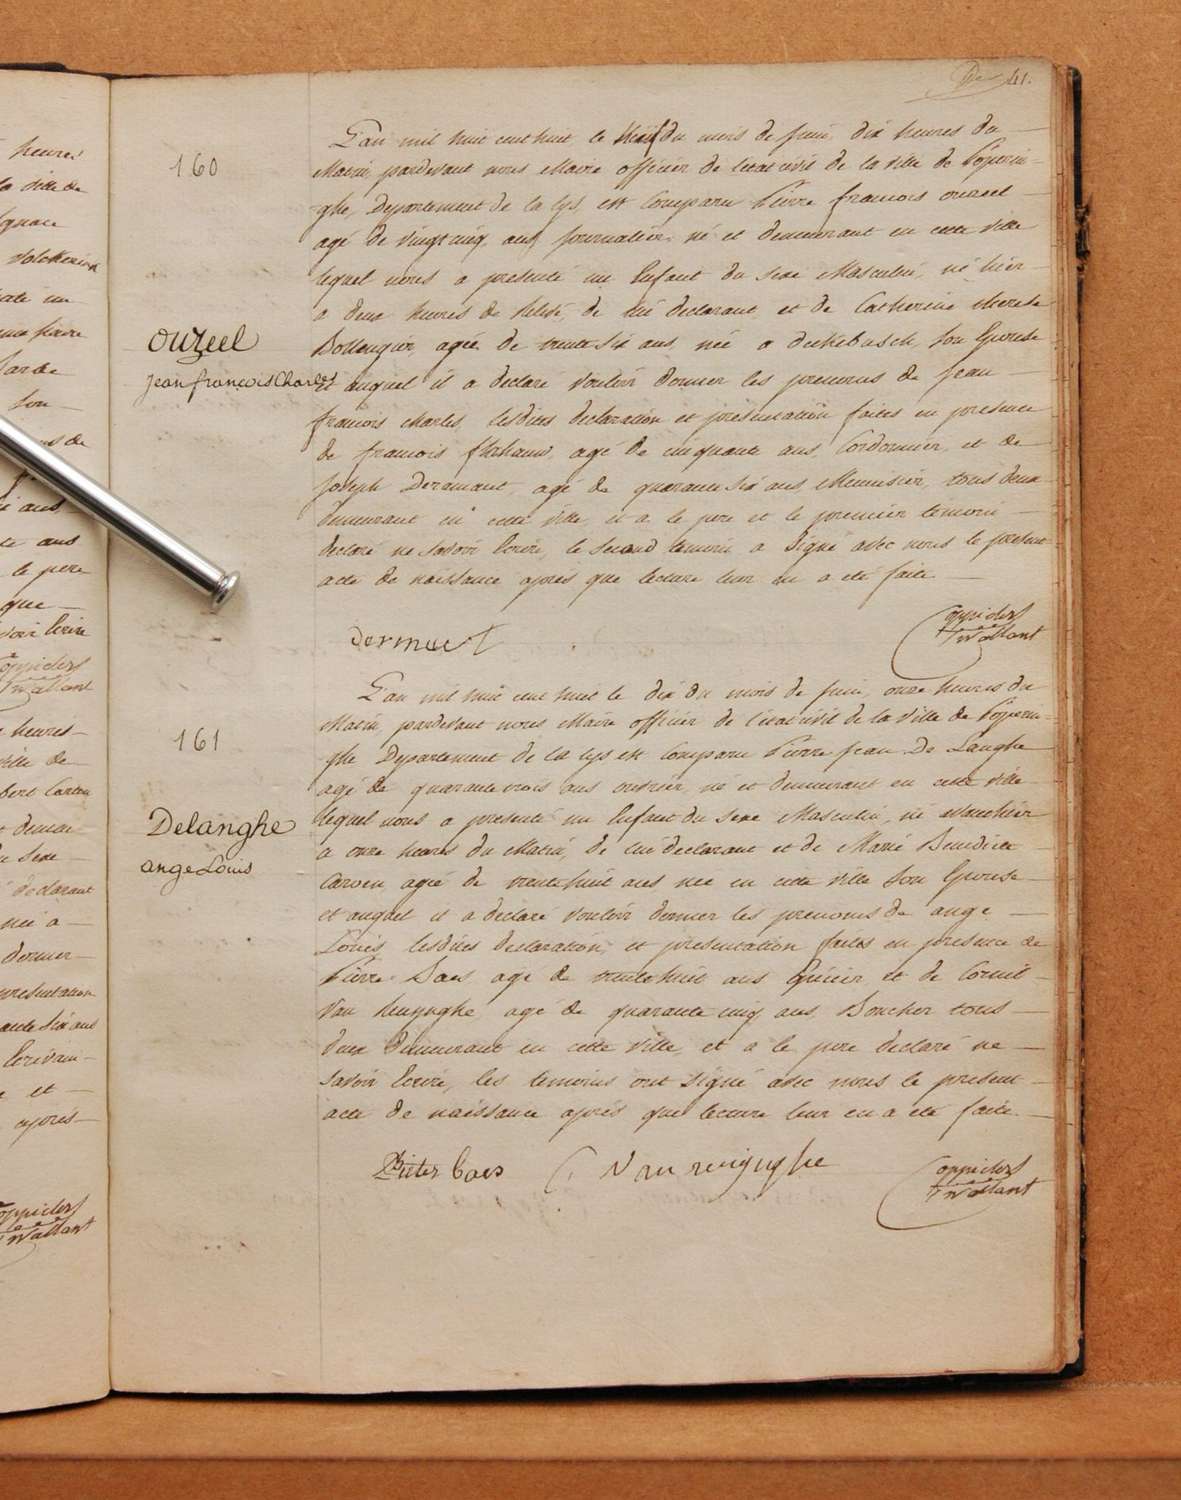 41.
160
L'an mil huit cent huit le du mois de juin, dix heures du
Matin, pardevant nous Maire officier de letat civil de la ville de Poperin-
ghe, Departement de la Lys, est Comparu Pierre francois ouzeel
agé de vingt cinq ans, journalier, né et demeurant en cette ville
lequel nous a presenté un Enfant du sexe Masculin, né hier
a deux heures de relevé, de lui declarant, et de Catherine therese
Bollengier, agée de trente six ans, née a dickebusch, son Epouse
ouzeel
jean francois Charles
et auquel il a declaré vouloir donner les prenoms de jean
francois charles, lesdites declaration et présentation faites en presence
de francois agé de cinquante ans, Cordonnier, et de
joseph Deramaut, agé de quarante six ans, Menuisier, tous deux
demeurant en cette ville, et a le pere et le premier temoin
declaré ne savoir Ecrire, le second temoin a signé avec nous le present
acte de naissance après que lecture leur en a été faite
dermaut
Coppieters
t'wallant
161
L'an mil huit cent huit le dix du mois de juin, onze heures du
Matin, pardevant nous Maire officier de l'état civil de la ville de Poperin-
ghe Departement de la Lys est Comparu Pierre jean De Langhe
agé de quarante trois ans ouvrier, né et demeurant en cette ville
Delanghe
ange Louis
lequel nous a presenté un Enfant du sexe Masculin, né avanthier
a onze heures du Matin, de lui declarant et de Marie Benedicte
Carven, agée de trente huit ans née en cette ville son Epouse
et auquel il a declaré vouloir donner les prenoms de ange
Louis, lesdites declaration, et presentation faites en presence de
Pierre Baes agé de trente huit ans Epicier et de Cornil
Van Renynghe, agé de quarante cinq ans, Boucher tous
deux demeurant en cette ville, et a le pere declaré ne
savoir Ecrire, les temoins ont signé avec nous le present
acte de naissance après que lecture leur en a été faite.
Pieter baes
C. Van renynghe
Coppieters
t'wallant